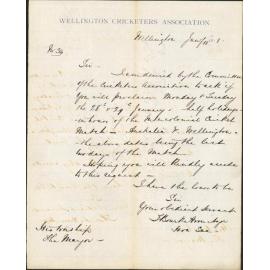 WELLINGTON CRICKETERS ASSOCIATION.
Wellington Jany
Sir
I am desired by the Committee
of the Cricketers Association to ask if
you will proclaim Monday & Tuesday
the 28th & 29th January - half holidays
in honor of the Intercolonial Cricket
Match - Australia v. Wellington -
the above dates being the last
two days of the Match -
Hoping you will kindly accede
to this request -
I have the honor to be
Sir
Your obedient Servant
Hon Sec
His Worship
The Mayor -